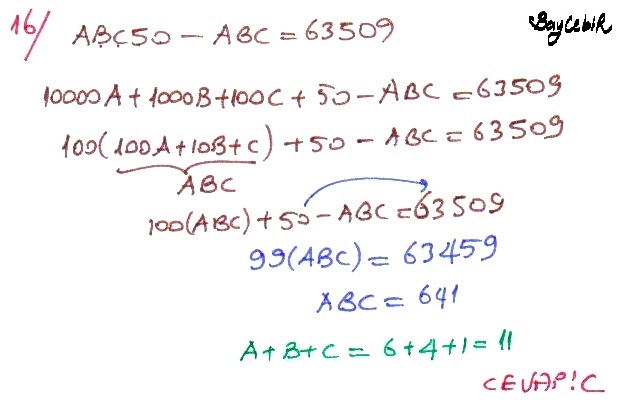 16/ ABC50 - ABC = 63509
BayCebiR
10000A + 1000B + 100C + 50 - ABC = 63509
100(100A + 10B + C) + 50 - ABC = 63509
ABC
100(ABC) + 50 - ABC = 63509
99(ABC) = 63459
ABC = 641
A + B + C = 6 + 4 + 1 = 11
CEVAP: C